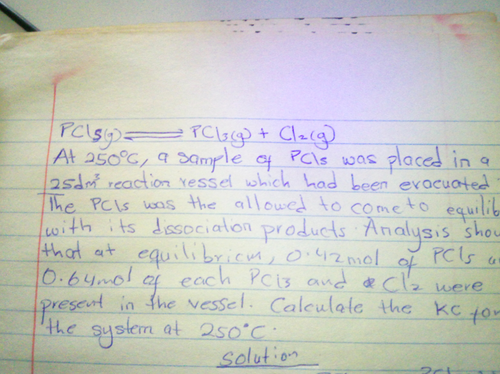 PCl5(g) ⇌ PCl3(g) + Cl2(g)
At 250°C, a sample of PCl5 was placed in a
25dm³ reaction vessel which had been evacuated
The PCl5 was the allowed to come to equilib
with its dissociation products. Analysis show
that at equilibrium, 0.42mol of PCl5 a
0.64mol of each PCl3 and Cl2 were
present in the vessel. Calculate the KC for
the system at 250°C.
Solution